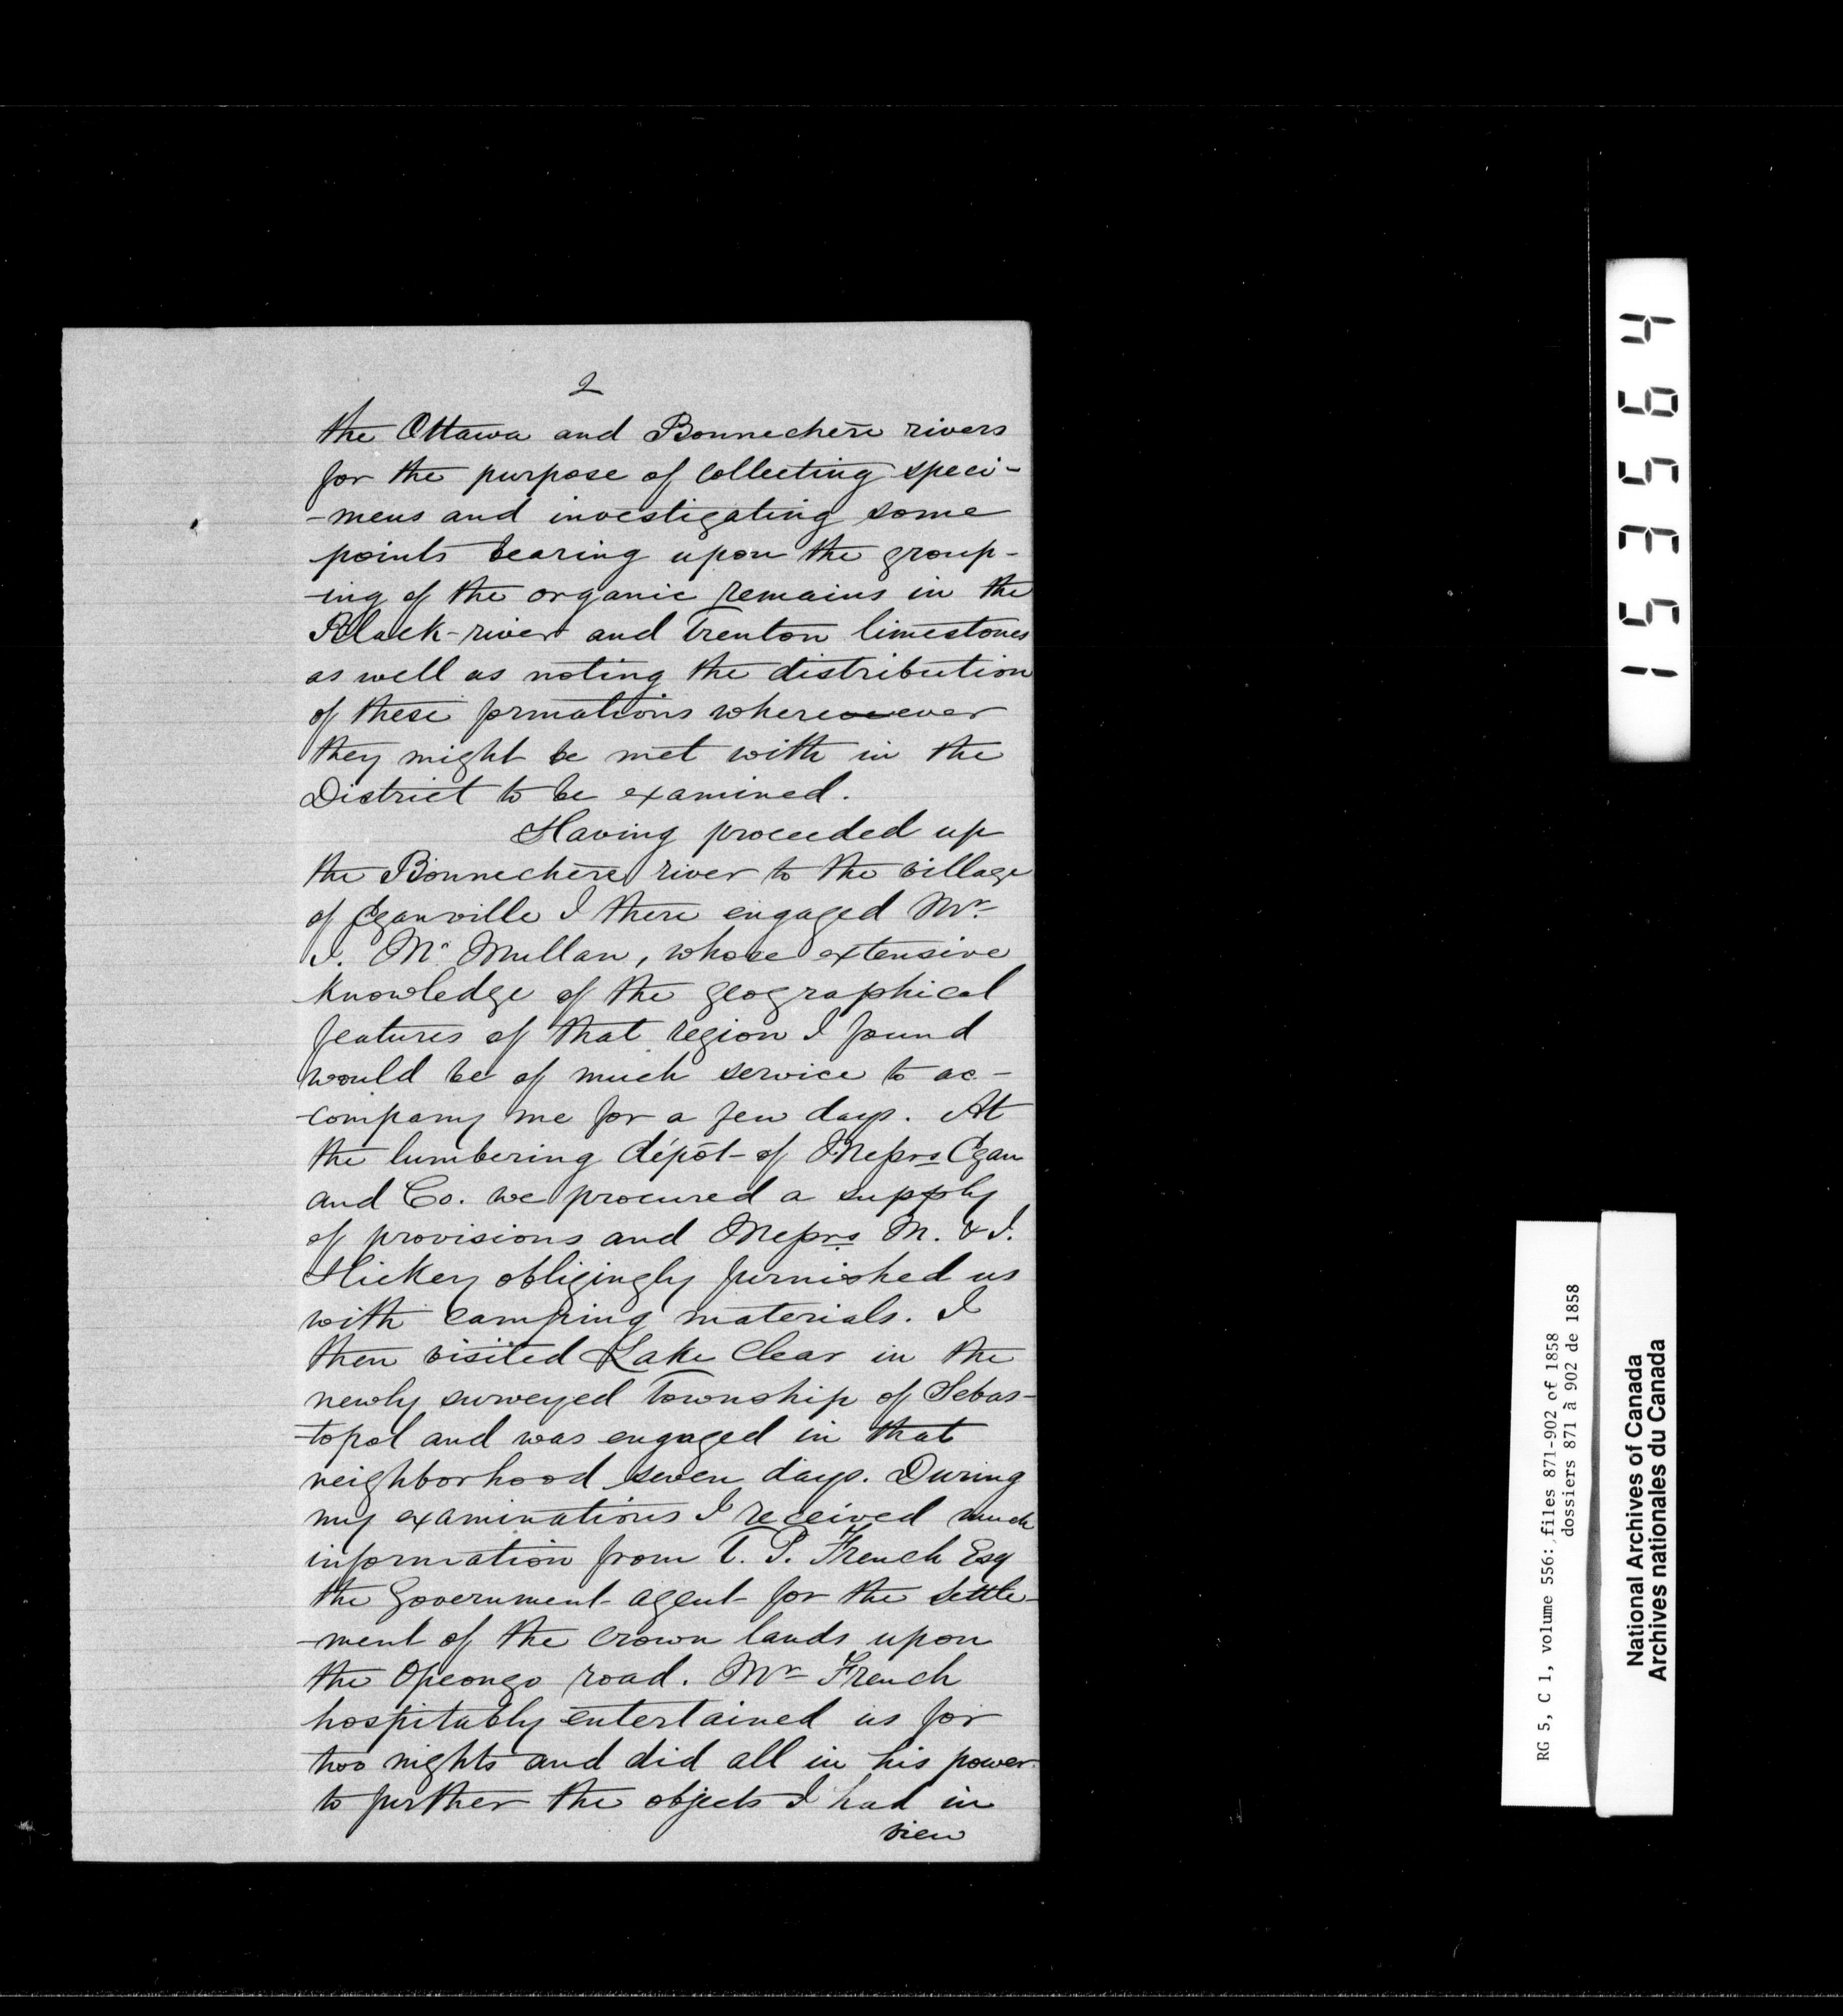 2
the Ottawa and Bonnechère rivers
for the purpose of collecting speci-
-mens and investigating some
points bearing upon the group-
-ing of the organic remains in the
Black-river and Trenton limestones
as well as noting the distribution
of these formations whereever
they might be met with in the
District to be examined.
Having proceeded up
the Bonnechère river to the village
of Eganville I there engaged Mr.
J. Mc Mullan, whose extensive
knowledge of the geographical
features of that region I found
would be of much service to ac-
-company me for a few days. At
the lumbering dépôt of Messrs Egan
and Co. we procured a supply
of provisions and Messrs M. & J.
Hickey obligingly furnished us
with camping materials. I
then visited Lake Clear in the
newly surveyed Township of Sebas-
-topol and was engaged in that
neighborhood seven days. During
my examinations I received much
information from T. P. French Esq
the Government agent for the settle-
-ment of the crown lands upon
the Opeongo road. Mr French
hospitably entertained us for
two nights and did all in his power
to further the objects I had in
view
153564
RG 5, C 1, volume 556: files 871-902 of 1858
dossiers 871 à 902 de 1858
National Archives of Canada
Archives nationales du Canada